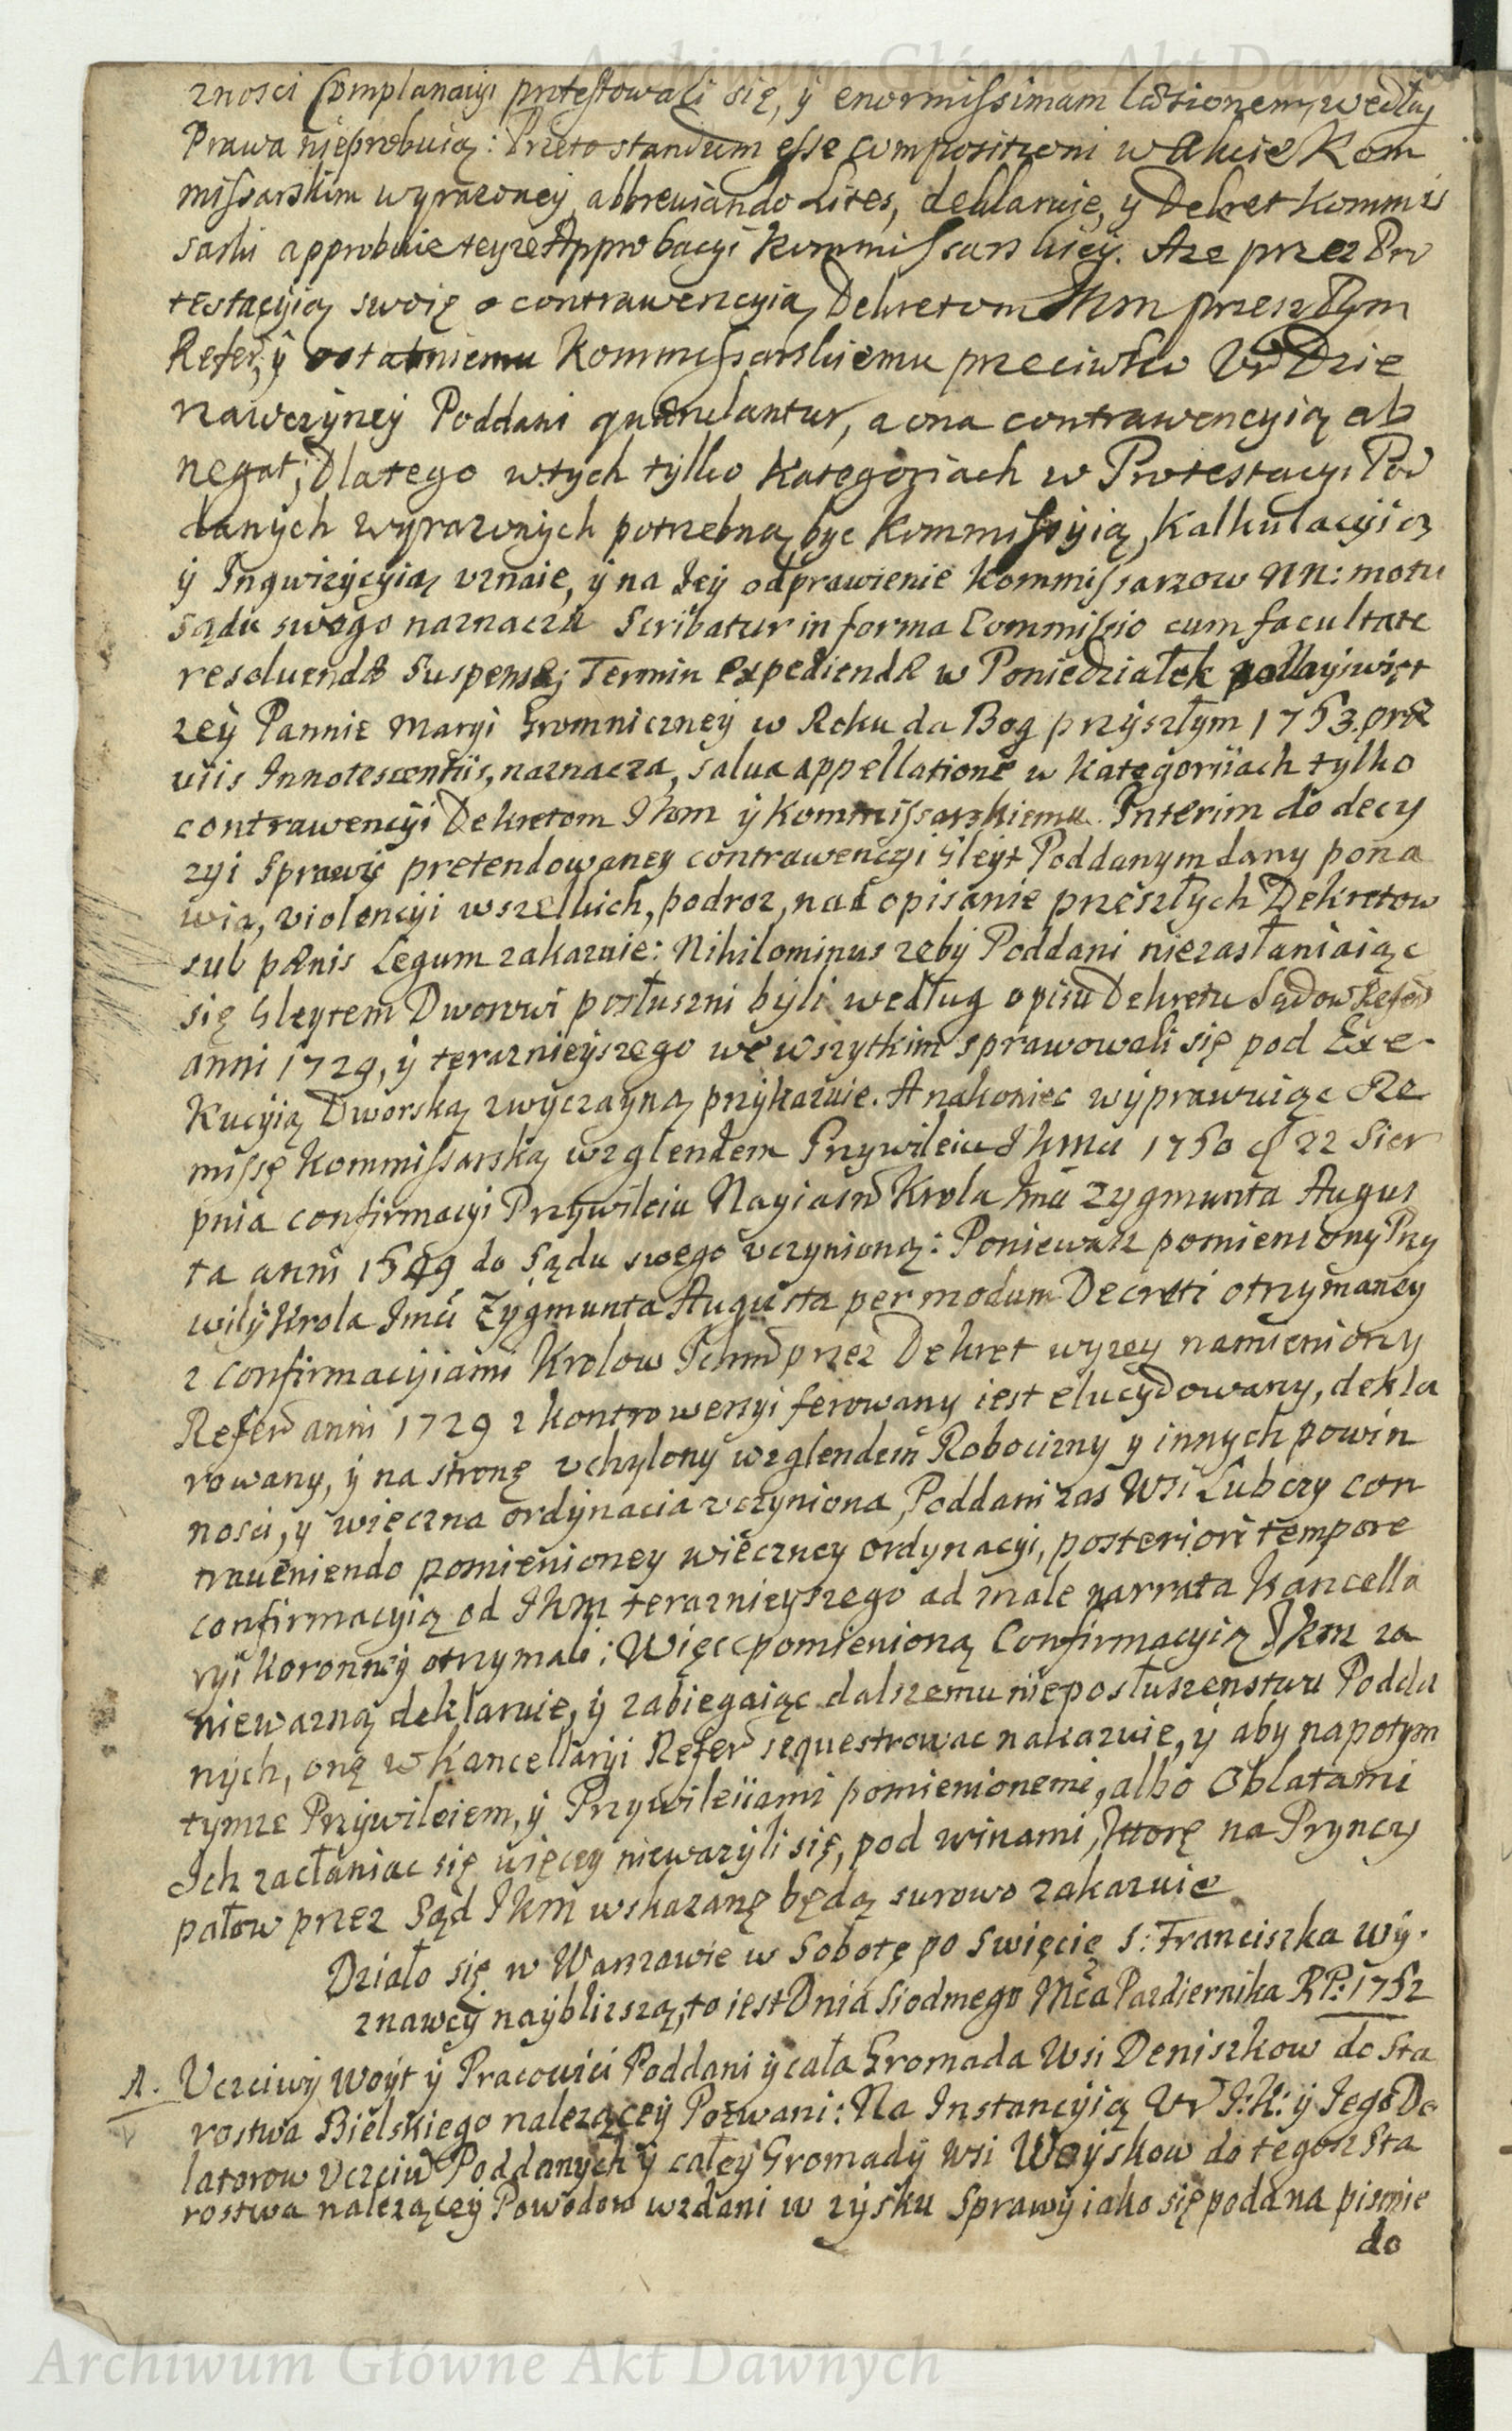 Archiwum Główne Akt Dawnych
znosci Complanacyi protestowali się, ÿ enormissimam læsionem, według
Prawa nieprobuią: Przeto standum esse compositioni w Akcie Kom
missarskim wyrazoney, abbreuiando Lites, deklaruie, y Dekret Kommis
sarski approbuie teyze Approbacyi Kommissarskiey. Aze przez Pro
testacyią swoię o contrawencyią Dekretom JKm przeszłym
Refer, ÿ ostatniemu Kommissarskiemu przeciwko Ur Dzie
rzawczyney Poddani quærulantur, a ona contrawencyią ab
negat; Dlatego w tych tylko Kategoriach w Protestacyi Pod
danych wyrazonych potrzebną byc Kommissyią, Kalkulacyią
ÿ Inqwizycyią uznaie, ÿ na Jey odprawienie Kommissarzow NN: motu
Sądu swego naznacza Scribatur in forma Commissio cum facultate
resoluendæ Suspensæ; Termin expediendæ w Poniedziałek po Nayświęt
zey Pannie Maryi Gromniczney w Roku da Bog przyszłym 1753. præ
uiis Innotescentiis, naznacza, salua appellatione w Kategoriiach tylko
contrawencyi Dekretom JKm ÿ Kommissarskiemu. Interim do decy
zyi Sprawy pretendowaney contrawencyi Gleyt Poddanym dany pona
wia, violencyi wszelkich, podroz, nad opisanie przeszłych Dekretow
sub pænis Legum zakazuie: Nihilominus zeby Poddani niezasłaniaiąc
się Gleytem Dworowi posłuszni byli według opisu Dekretu Sądow Refer
anni 1729, ÿ teraznieyszego we wszytkim sprawowali się pod Exe-
Kucyią Dworską zwyczayną przykazuie. A nakoniec wyprawuiąc Re
missę Kommissarską wzglendem Przywileiu JKmci 1750 d 22 Sier
pnia confirmacyi Przywileiu Nayiasn Krola Jmci Zygmunta Augus
ta anni 1549 do Sądu swego uczynioną: Poniewarz pomieniony Przy
wily Krola Jmci Zygmunta Augusta per modum Decreti otrzymaney
z confirmacyiami Krolow Ichm przez Dekret wyzey namieniony
Refer anni 1729 z kontrowersyi ferowany iest elucydowany, dekla
rowany, ÿ na stronę uchylony wzglendem Robocizny y innych powin
nosci, ÿ wieczna ordynacia uczyniona, Poddani zas Wsi Lubczy con
traueniendo pomienioney wieczney ordynacyi, posteriori tempore
confirmacyią od JKm teraznieyszego ad male narrata Kancella
ryi Koronney otrzymali; Więc pomienioną Confirmacyią JKm za
niewazną deklaruie, ÿ zabiegaiąc dalszemu nieposłuszenstwu Podda
nych, onę w Kancellaryi Refer sequestrowac nakazuie, ÿ aby napotym
tymze Przywileiem, ÿ Przywileiiami pomienionemi, albo Oblatami
Ich zacłaniac się więcey niewazyli się, pod winami, Ktorę na Pryncy
pałow przez Sąd JKm wskazanę będą surowo zakazuie
Działo się w Warszawie w Sobotę po Swięcie S: Franciszka Wy.
znawcy naybliszą, to iest Dnia Siodmego Mca Pazdiernika RP: 1752
A. Uczciwy Woyt ÿ Pracowici Poddani ÿ cała Gromada Wsi Deniszkow do Sta
rostwa Bielskiego nalezącey Pozwani: Na Instancyią Ur J:K: ÿ Jego De
latorow Uczciw Poddanych ÿ całey Gromady wsi Woyskow do tegorz Sta
rostwa nalezącey Powodow wzdani w zysku Sprawy iako się poda na pismie
do
Archiwum Główne Akt Dawnych